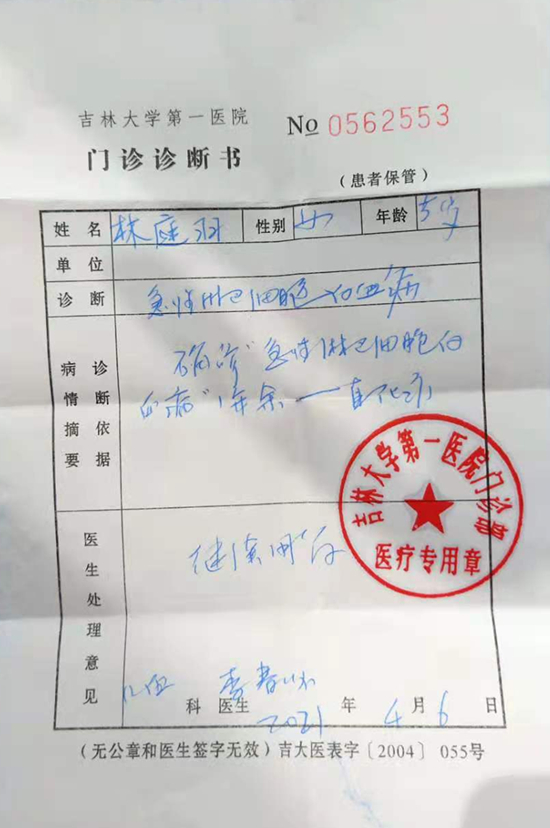 吉林大学第一医院
No 0562553
门诊诊断书
(患者保管)
姓名 林庭羽 性别 女 年龄 5岁
单位
诊断 急性淋巴细胞白血病
病情摘要 诊断依据
确诊"急性淋巴细胞白
血病"1年余一直化疗
吉林大学第一医院门诊部
医疗专用章
医生处理意见
继续用药
儿血 科 医生
2021 年 4 月 6 日
(无公章和医生签字无效)吉大医表字〔2004〕055号